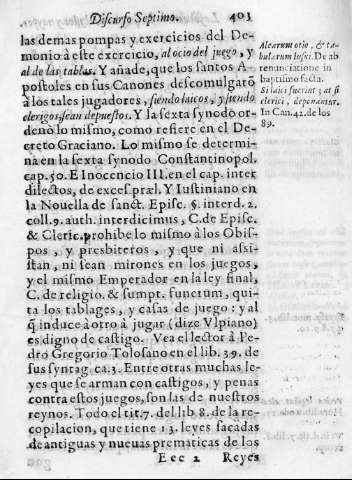 Discurso Septimo. 401
las demas pompas y exercicios del De-
monio à este exercicio, al ocio del juego, y
al de las tablas. Y añade, que los santos A-
postoles en sus Canones descomulgarõ
à los tales jugadores, siendo laicos, y siendo
clerigos sean depuestos. Y la sexta synodo or-
denò lo mismo, como refiere en el De-
creto Graciano. Lo mismo se determi-
na en la sexta synodo Constantinopol.
cap. 50. E Inocencio III. en el cap. inter
dilectos, de exces. præl. Y Iustiniano en
la Nouella de sanct. Episc. §. interd. 2.
coll. 9. auth. interdicimus, C. de Episc.
& Cleric. prohibe lo mismo à los Obis-
pos, y presbiteros, y que ni assi-
stan, ni sean mirones en los juegos,
y el mismo Emperador en la ley final,
C. de religio. & sumpt. funerum, qui-
ta los tablages, y casas de juego: y al
q̃ induce à otro à jugar (dize Vlpiano)
es digno de castigo. Vea el lector à Pe-
dro Gregorio Tolosano en el lib. 39. de
sus syntag. ca. 3. Entre otras muchas le-
yes que se arman con castigos, y penas
contra estos juegos, son las de nuestros
reynos. Todo el tit. 7. del lib 8. de la re-
copilacion, que tiene 13. leyes sacadas
de antiguas y nueuas prematicas de los
Eee 2 Reyes
Alearum otio, & ta-
bularum lusui. De ab
renunciatione in
baptismo facta.
Si laici fuerint; at si
clerici, deponantur.
In Can. 42. de los
89.